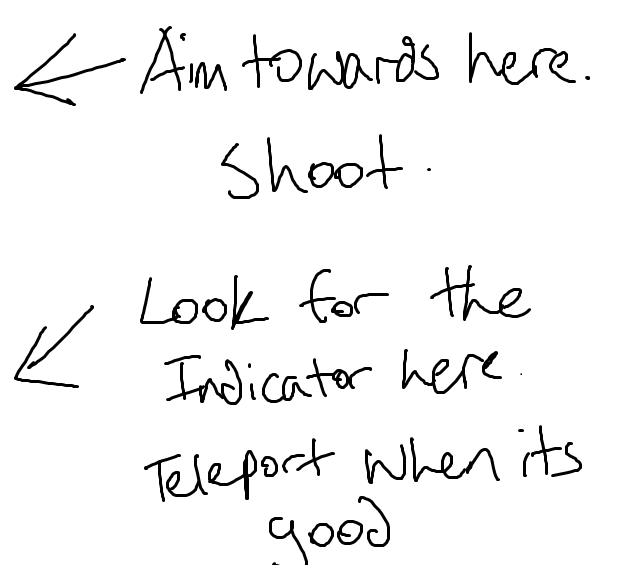 Aim towards here.
Shoot.
Look for the
Indicator here.
Teleport when its
good